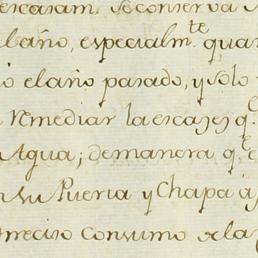 escasam. Seconserva
baño, especialm.te quan
o elaño pasado, y solo
remediar la escases q.e
Agua; demanera q.e
su Puerta y Chapa
preciso Consumo dela